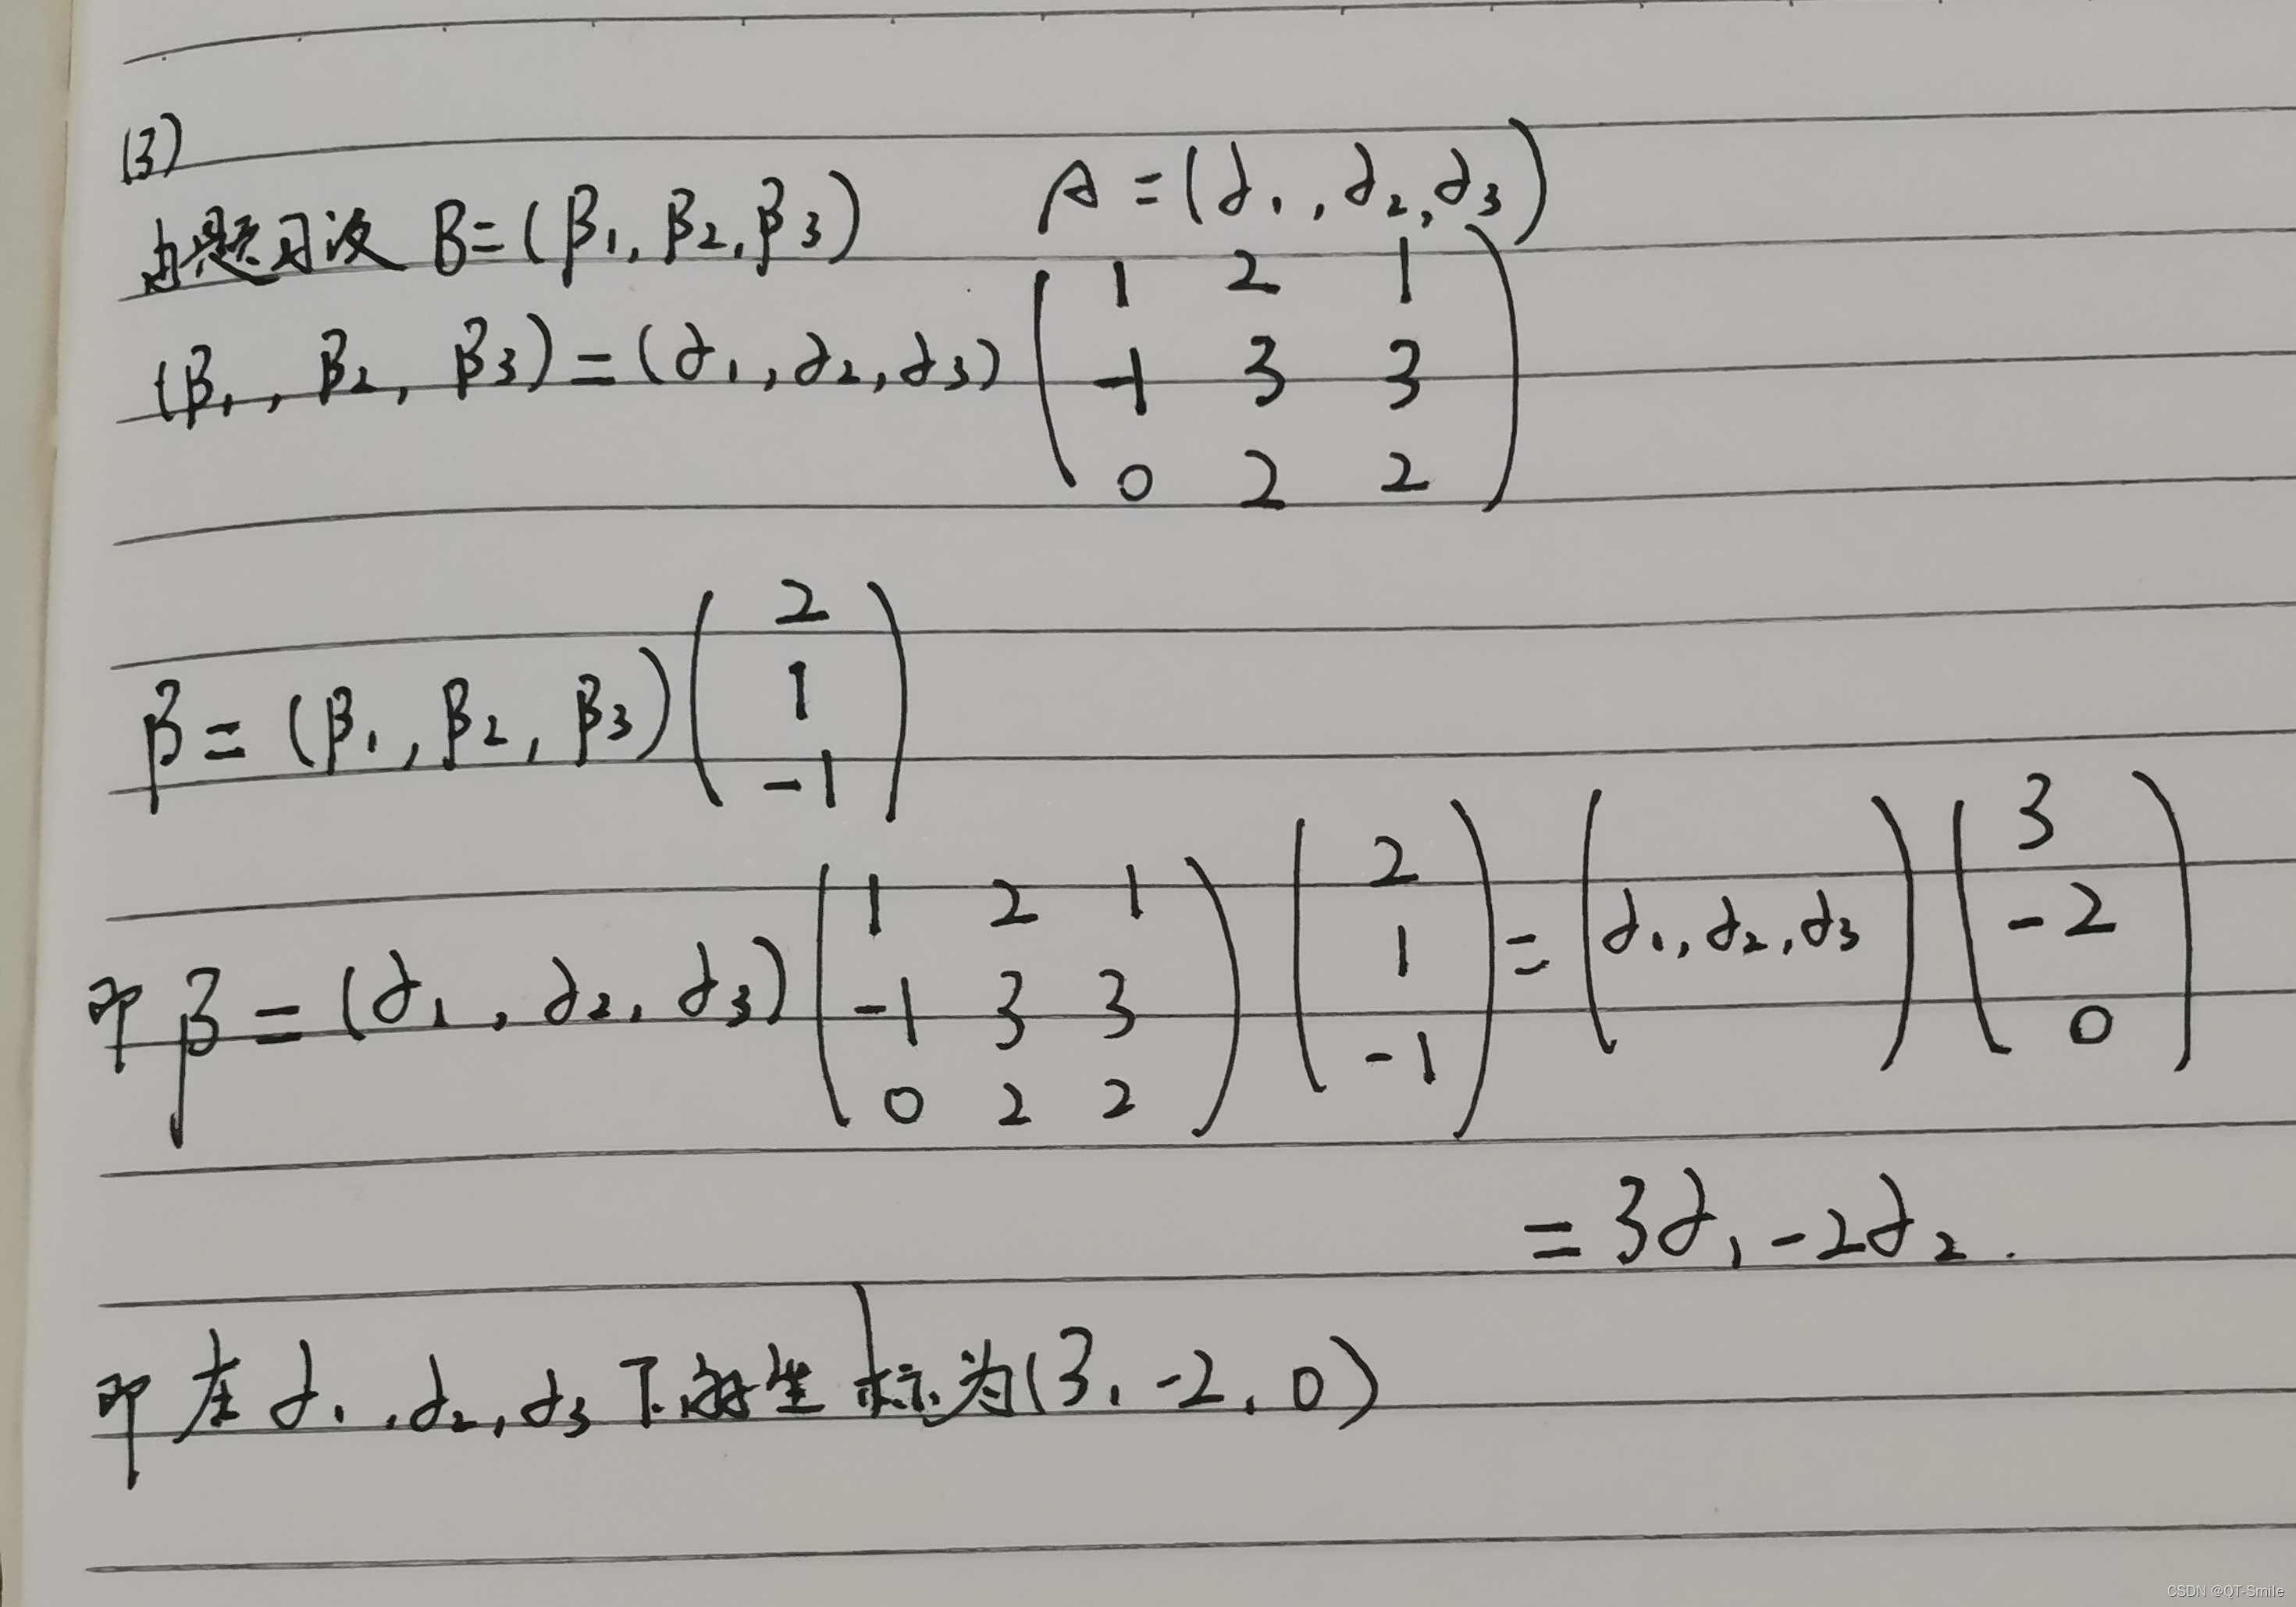 (3)
由题可设 B=(β₁, β₂, β₃) A=(α₁, α₂, α₃)
(β₁, β₂, β₃)=(α₁, α₂, α₃) ( 1 2 1
-1 3 3
0 2 2 )
β=(β₁, β₂, β₃) ( 2
1
-1 )
即 β=(α₁, α₂, α₃) ( 1 2 1
-1 3 3
0 2 2 ) ( 2
1
-1 ) = (α₁, α₂, α₃) ( 3
-2
0 )
= 3α₁-2α₂.
即在 α₁, α₂, α₃ 下的坐标为(3, -2, 0)
CSDN @QT-Smile